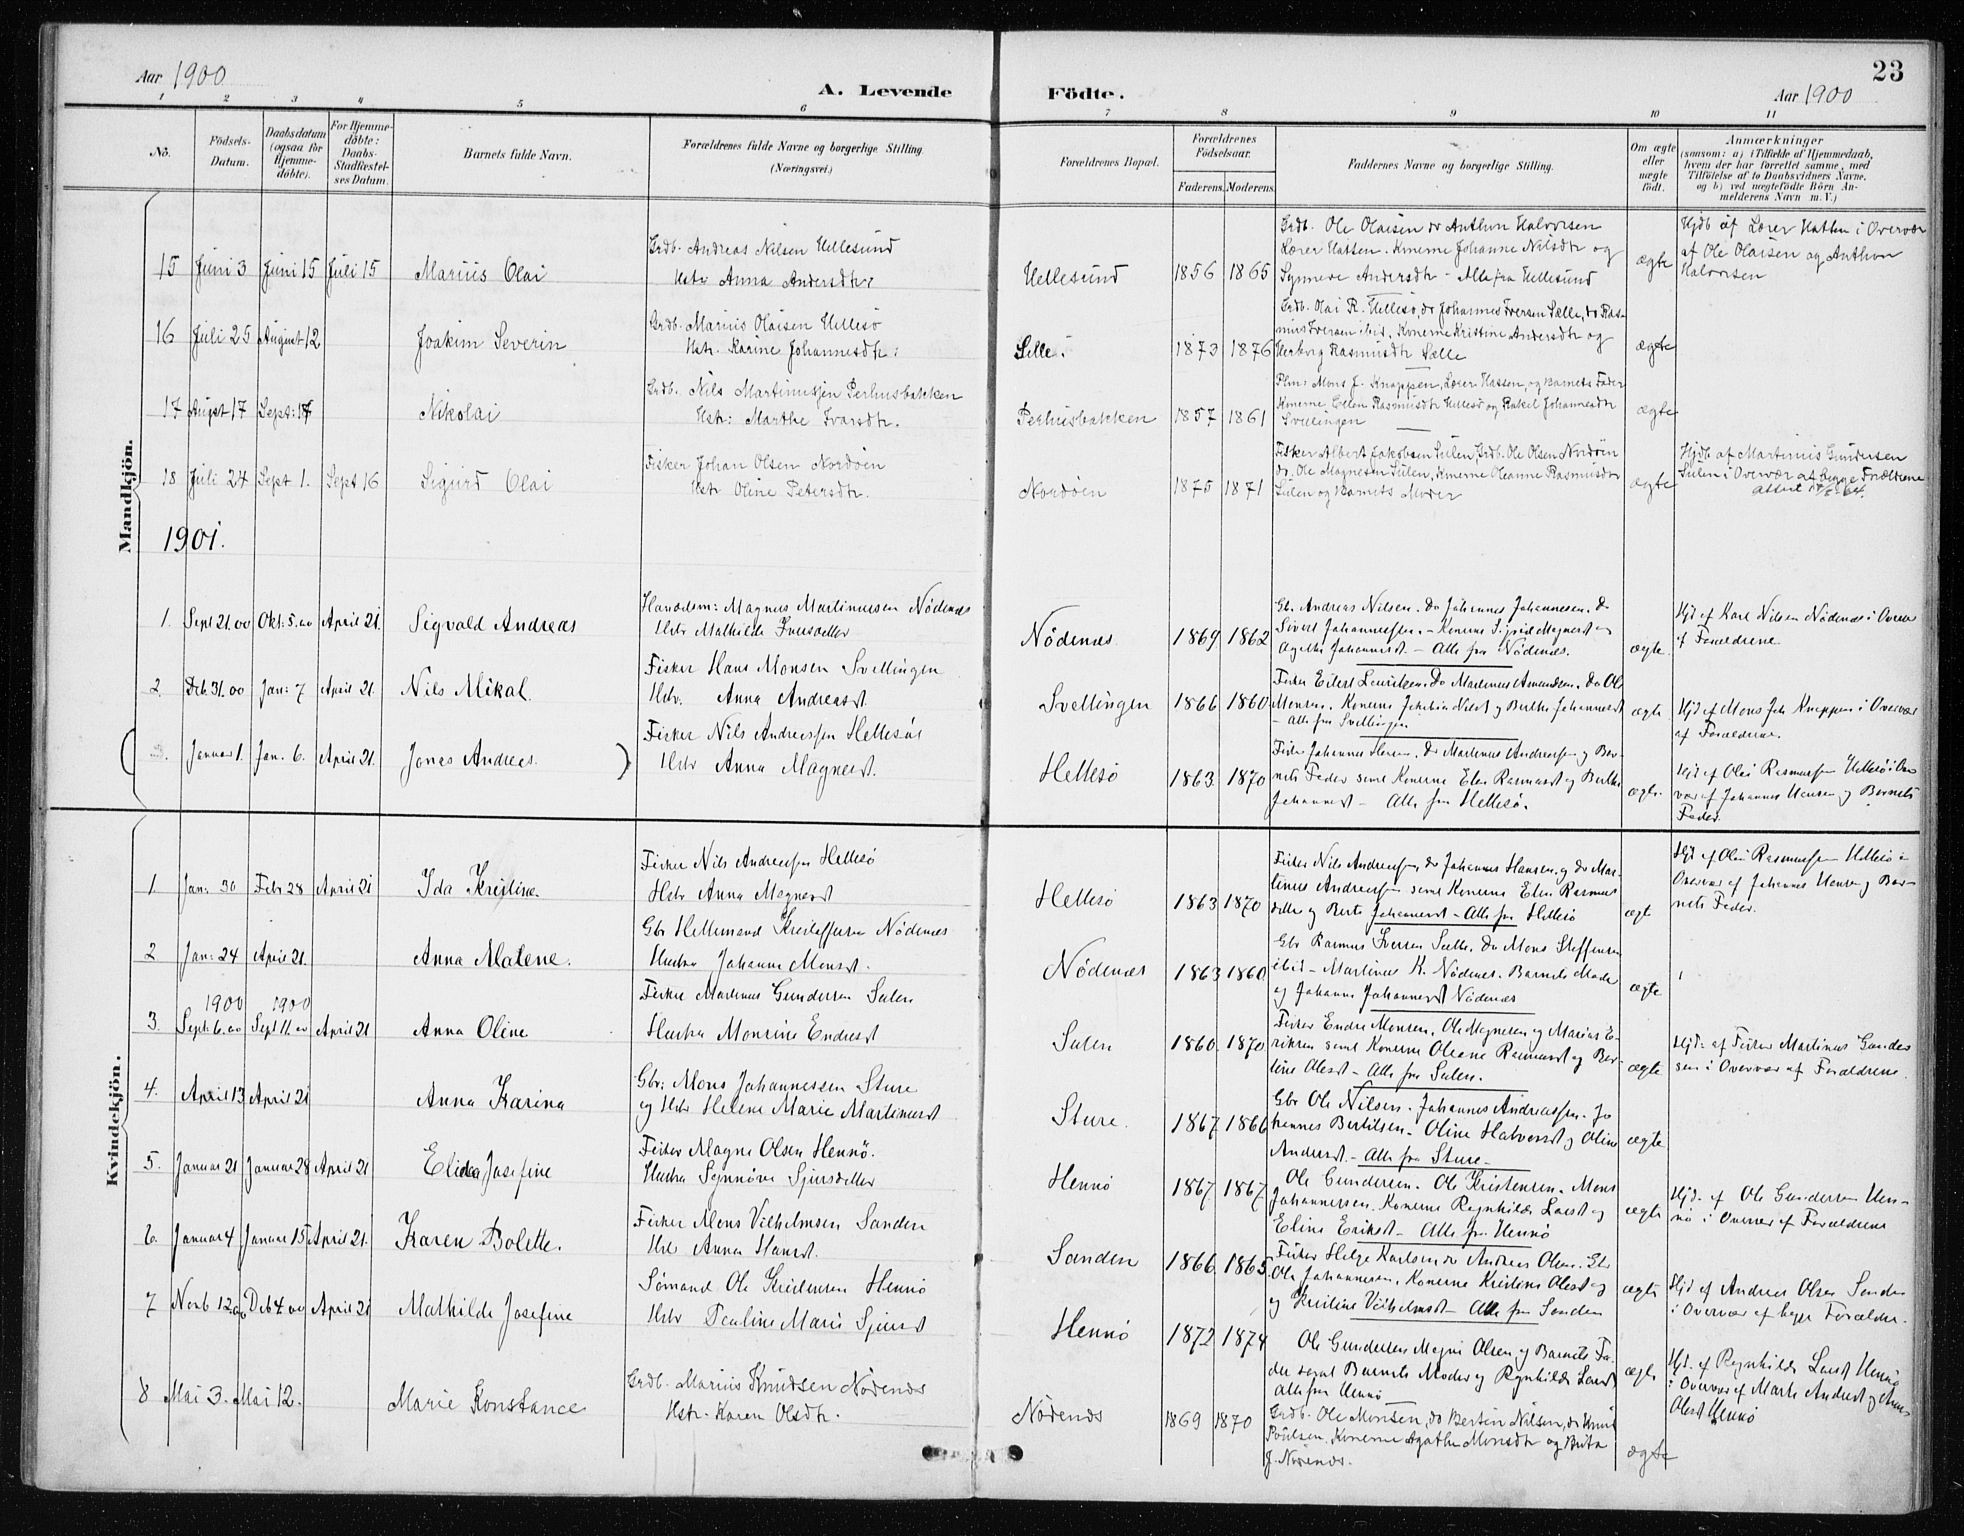 23
Aar 1900
A. Levende
Födte.
Aar 1900
1 2 3 4 5 6 7 8 9 10 11
No.
Födsels-
Datum.
Daabsdatum
(ogsaa for
Hjemme-
döbte).
For Hjemme-
döbte:
Daabs-
Stadfæstel-
ses Datum.
Barnets fulde Navn.
Forældrenes fulde Navne og borgerlige Stilling
(Næringsvei.)
Forældrenes Bopæl.
Forældrenes
Födselsaar.
Faderens. Moderens.
Faddernes Navne og borgerlige Stilling.
Om ægte
eller
uægte
födt.
Anmærkninger
(saasom: a) i Tilfælde af Hjemmedaab,
hvem der har forrettet samme, med
Tilföielse af to Daabsvidners Navne,
og b) ved uægtefödte Börn An-
melderens Navn m. V.)
Mandkjön.
15 Juni 3 Juni 15 Juli 15 Marius Olai
Grdb. Andreas Nilsen Hellesund
Hstr Anna Andersdtr
Hellesund 1856 1865
Grdb. Ole Olaisen do Anthon Halvorsen
Lærer Hatten. Konerne Johanne Nilsdtr og
Synneve Andersdtr - Alle fra Hellesund
ægte
Hjdb af Lærer Hatten i Overvær
af Ole Olaisen og Anthon
Halvorsen
16 Juli 25 August 12 Joakim Severin
Grdb. Marius Olaisen Hellesö
Hstr. Karine Johannesdtr:
Sille. 1873 1876
Grdb. Olai R. Hellesö, do Johannes Iversen Sælle, do Ras-
mus Iversen ibid. Konerne Kristine Andersdtr og
Herborg Rasmusdtr Sælle
ægte
17 August 17 Sept: 17 Nikolai
Grdb. Nils Martinussen Perhusbakken
Hstr: Marthe Ivarsdtr.
Perhusbakken 1857 1861
Plm: Mons J. Knappen, Lærer Hatten, og Barnets Fader
Konerne Ellen Rasmusdtr Hellesö og Rakel Johannesdtr
Svellingen
ægte
18 Juli 24 Sept 1. Sept 16 Sigurd Olai
Fisker Johan Olsen Nordöen
Hstr Oline Petersdtr.
Nordöen 1875 1871
Fisker Albert Jakobsen Sulen, Grdb. Ole Olsen Nordöen
do, Ole Magnesen Sulen, Konerne Oleanne Rasmusdtr
Sulen og Barnets Moder
ægte
Hjdb af Martinus Gundersen
Sulen i Overvær af begge Forældrene
1901.
1. Sept 21.00 Okt: 5.00 April 21. Sigvald Andreas
Handelsm: Magnus Martinussen Nödenæs
Hstr Mathilde Iversdatter
Nödenæs 1869. 1862
Gb. Andreas Nilsen. Do Johannes Johannesen. do
Sivert Johannessen. - Konerne Sigrid Magnesd og
Agathe Johannesd - Alle fra Nödenæs.
ægte.
Hjd af Karl Nilsen Nödenæs i Overvær
af Forældrene.
2. Dcb. 31.00 Jan: 7 April 21. Nils Mikal.
Fisker Hans Monsen Svellingen
Hstr. Anna Andreasd.
Svellingen 1866 1860
Monsen. Konerne og Berthe Johannesd
- Alle fra Svellingen
ægte.
Hjd af Mons Joh Knappen i Overvær
af Forældrene.
Januar 1. Jan. 6. April 21. Jonas Andreas.
Fisker Nils Andreassen Hellesö
Hstr Anna Magnesd.
Hellesö 1863 1870
Fisker Johannes Hansen. do Martinus Andreassen og Bar-
nets Fader samt Konerne Elen Rasmusd og Berthe
Johannesd - Alle fra Hellesö.
ægte.
Hjd af Olai Rasmussen Hellesö i Over
vær af Johannes Hansen og Barnets
Fader.
Kvindekjön.
1. Jan: 30 Febr 28 April 21 Ida Kristine
Fisker Nils Andreassen Hellesö
Hstr Anna Magnesd
Hellesö 1863 1870
Fisker Nils Andreassen, do Johannes Hansen og do Mar-
tinus Andreassen samt Konerne Elen Rasmus
datter og Berte Johannesd - Alle fra Hellesö
ægte
Hjd af Olai Rasmussen Hellesö i
Overvær af Johannes Hansen og Bar-
nets Fader.
2 Jan: 24 April 21. Anna Malene.
Gbr Kristoffersen Nödenæs
Hustru Johanne Monsd.
Nödenæs 1863 1860.
Gbr Rasmus Iversen Sælle. Do Mons Steffensen
ibid - Martinus K. Nödenæs. Barnets Moder
og Johanne Johannesd Nödenæs
ægte
1900 1900
3. Sept: 6.00 Sept 11.00 April 21 Anna Oline
Fisker Martinus Gundersen Sulen
Hustru Monsine Endresd
Sulen 1860. 1870.
Fisker Endre Monsen. Ole Magnesen og Marius E-
riksen samt Konerne Oleane Rasmusd og Ber-
tine Olesd - Alle fra Sulen.
ægte
Hjd: af Fisker Martinus Gunder
sen i Overvær af Forældrene.
4. April 13 April 21 Anna Karina
Gbr: Mons Johannessen Sture
og Hstr Helene Marie Martinusd
Sture. 1867. 1866
Gbr Ole Nilsen. Johannes Andreassen. Jo
hannes Bertilsen. Oline Halvorsd og Oline
Andersd. - Alle fra Sture -
ægte
5. Januar 21 Januar 28 April 21 Elida Josefine
Fisker Magne Olsen Hennö.
Hustru Synnöve Sjursdatter
Hennö 1867. 1867.
Ole Gundersen. Ole Kristensen. Mons
Johannessen. Konerne Ragnhilde Larsd og
Eline Eriksd - Alle fra Hennö
ægte
Hjd. af Ole Gundersen Hen-
nö i Overvær af Forældrene
6. Januar 4 Januar 15 April 21. Karen Bolette.
Fisker Mons Vilhelmsen Sanden
Hstr Anna Hansd.
Sanden 1866. 1865.
Fisker Helge Karlsen do Andreas Olsen. Gbr
Ole Johannesen. Konerne Kristine Olesd og
og Kristine Vilhelmsd - Alle fra Sanden
ægte
Hjd af Andreas Olsen Sanden
i Overvær af begge Forældre.
7 Novb 12.00 Dcb 4 00 April 21 Mathilde Josefine
Sömand Ole Kristensen Hennö
Hstr Pauline Marie Sjursd
Hennö 1872 1874
Ole Gundersen Magne Olsen og Barnets Fa-
der samt Barnets Moder og Ragnhilde Larsd
Alle fra Hennö
ægte
Hjd. af Ragnhilde Larsd Hennö
i Overvær af Marta Andersd og Anna
Olesd Hennö
8 Mai 3. Mai 12. Marie Konstance
Grdb. Marius Knudsen Nödenæs
Hstr. Karen Olsdtr.
Nödenæs 1869 1870
Grdb. Ole Monsen, do Bertin Nilsen, do Knud
Poulsen. Konerne Agathe Monsdtr og Brita
J. Nödenæs.
ægte